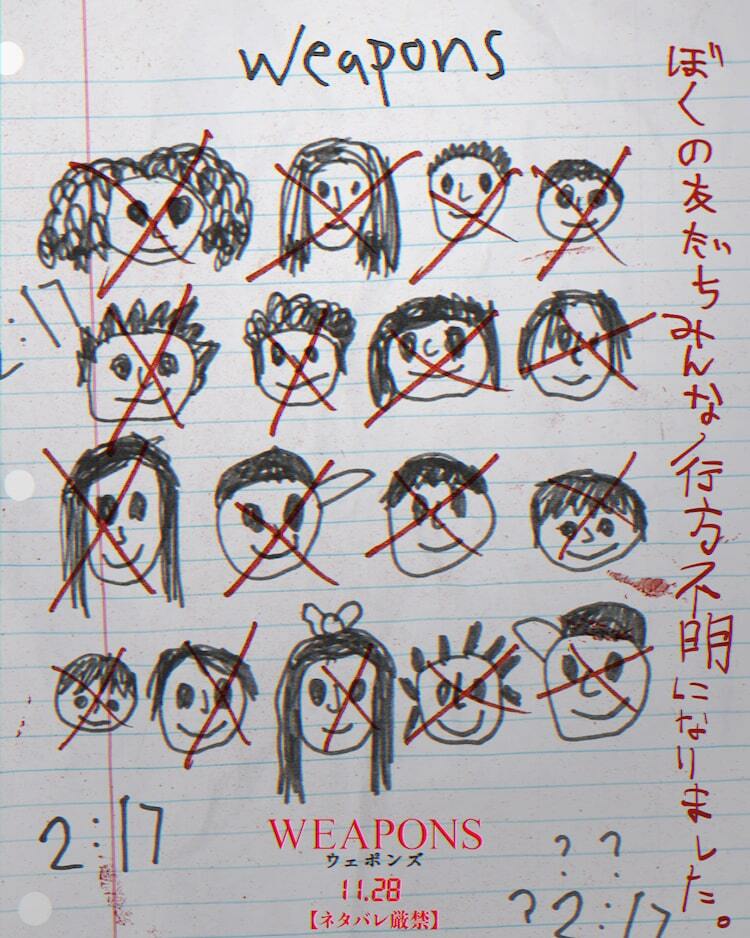 weapons
ぼくの友だちみんな行方不明になりました。
: 17
2:17
WEAPONS
ウェポンズ
11.28
【ネタバレ厳禁】
? ?
? 2:17